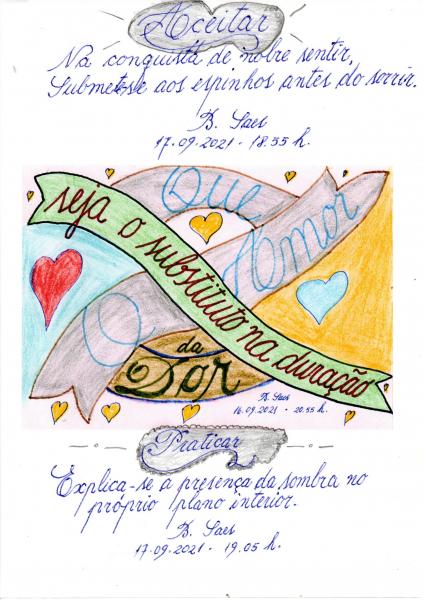 Aceitar
Na conquista de nobre sentir,
Submete-se aos espinhos antes do sorrir.
B. Saes
17.09.2021 - 18.55 h.
Que
O Amor
seja o substituto na duração
da
Dor
B. Saes
16.09.2021 - 20.55 h.
Praticar
Explica-se a presença da sombra no
próprio plano interior.
B. Saes
17.09.2021 - 19.05 h.